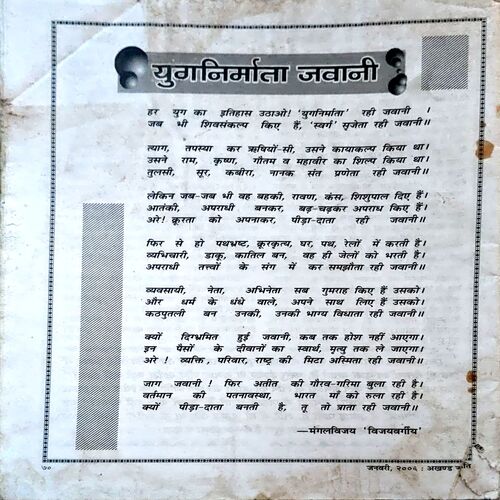 युगनिर्माता जवानी
हर युग का इतिहास उठाओ! 'युगनिर्माता' रही जवानी ।
जब भी शिवसंकल्प किए हैं, 'स्वर्ग' सृजेता रही जवानी॥
त्याग, तपस्या कर ऋषियों-सी, उसने कायाकल्प किया था।
उसने राम, कृष्ण, गौतम व महावीर का शिल्प किया था।
तुलसी, सूर, कबीरा, नानक संत प्रणेता रही जवानी॥
लेकिन जब-जब भी वह बहकी, रावण, कंस, शिशुपाल दिए हैं।
आतंकी, अपराधी बनकर, बढ़-चढ़कर अपराध किए हैं।
अरे! क्रूरता को अपनाकर, पीड़ा-दाता रही जवानी॥
फिर से हो पथभ्रष्ट, क्रूरकृत्य, घर, पथ, रेलों में करती है।
व्यभिचारी, डाकू, कातिल बन, वह ही जेलों को भरती है।
अपराधी तत्त्वों के संग में कर समझौता रही जवानी॥
व्यवसायी, नेता, अभिनेता सब गुमराह किए हैं उसको।
और धर्म के धंधे वाले, अपने साथ लिए हैं उसको।
कठपुतली बन उनकी, उनकी भाग्य विधाता रही जवानी॥
क्यों दिग्भ्रमित हुई जवानी, कब तक होश नहीं आएगा।
इन पैसों के दीवानों का स्वार्थ, मृत्यु तक ले जाएगा।
अरे ! व्यक्ति, परिवार, राष्ट्र की मिटा अस्मिता रही जवानी॥
जाग जवानी ! फिर अतीत की गौरव-गरिमा बुला रही है।
वर्तमान की पतनावस्था, भारत माँ को रुला रही है।
क्यों पीड़ा-दाता बनती है, तू तो त्राता रही जवानी॥
—मंगलविजय 'विजयवर्गीय'
७० जनवरी, २००६ : अखण्ड ज्योति